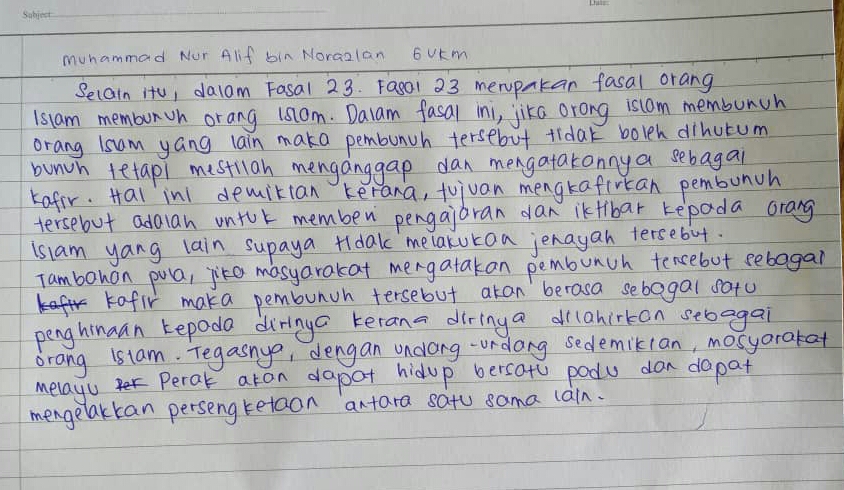 Subject:
Date:
Muhammad Nur Alif bin Norazlan 6 UKM
Selain itu, dalam Fasal 23. Fasal 23 merupakan fasal orang
Islam membunuh orang Islam. Dalam fasal ini, jika orang islam membunuh
orang Islam yang lain maka pembunuh tersebut tidak boleh dihukum
bunuh tetapi mestilah menganggap dan mengatakannya sebagai
kafir. Hal ini demikian kerana, tujuan mengkafirkan pembunuh
tersebut adalah untuk memberi pengajaran dan iktibar kepada orang
Islam yang lain supaya tidak melakukan jenayah tersebut.
Tambahan pula, jika masyarakat mengatakan pembunuh tersebut sebagai
kafir kafir maka pembunuh tersebut akan berasa sebagai satu
penghinaan kepada dirinya kerana dirinya dilahirkan sebagai
orang Islam. Tegasnya, dengan undang-undang sedemikian, masyarakat
melayu Per Perak akan dapat hidup bersatu padu dan dapat
mengelakkan persengketaan antara satu sama lain.